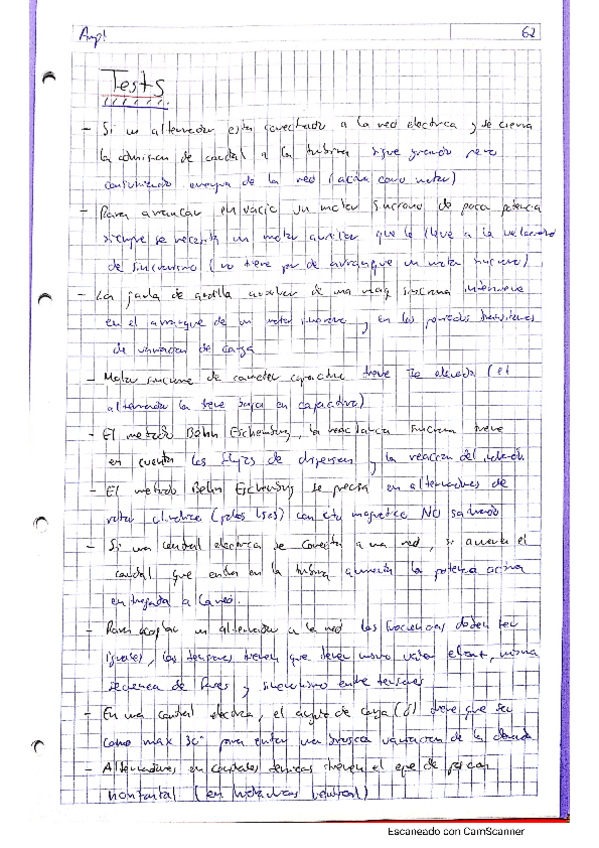 Ampl 62
Tests
- Si un alternador esta conectado a la red electrica y se cierra
la admision de caudal a la turbina sigue girando pero
consumiendo energia de la red (actúa como motor)
- Para arrancar en vacio un motor sincrono de poca potencia
siempre se necesita un motor auxiliar que le lleve a la velocidad
de sincronismo (no tiene par de arranque un motor sincrono).
- La jaula de ardilla auxiliar de una maq sincrona interviene
en el arranque de un motor sincrono y en los periodos transitorios
de variacion de carga
- Motor sincrono de caracter capacitivo tiene Ie elevada (el
alternador la tiene baja en capacitiva)
- El metodo Behn Eschenburg, la reactancia sincrona tiene
en cuenta los flujos de dispersion y la reaccion del inducido
- El metodo Behn Eschenburg se precisa en alternadores de
rotor cilindrico (polos lisos) con cto magnetico NO saturado
- Si una central electrica se conecta a una red, si aumenta el
caudal que entra en la turbina aumenta la potencia activa
entregada a la red.
- Para acoplar un alternador a la red las frecuencias deben ser
iguales, las tensiones tienen que tener mismo valor eficaz, misma
secuencia de fases y sincronismo entre tensiones
- En una central electrica, el angulo de carga (δ) tiene que ser
como max 30° para evitar una brusca variacion de la
- Alternadores en centrales termicas tienen el eje de
horizontal (en hidraulicas vertical)
Escaneado con CamScanner